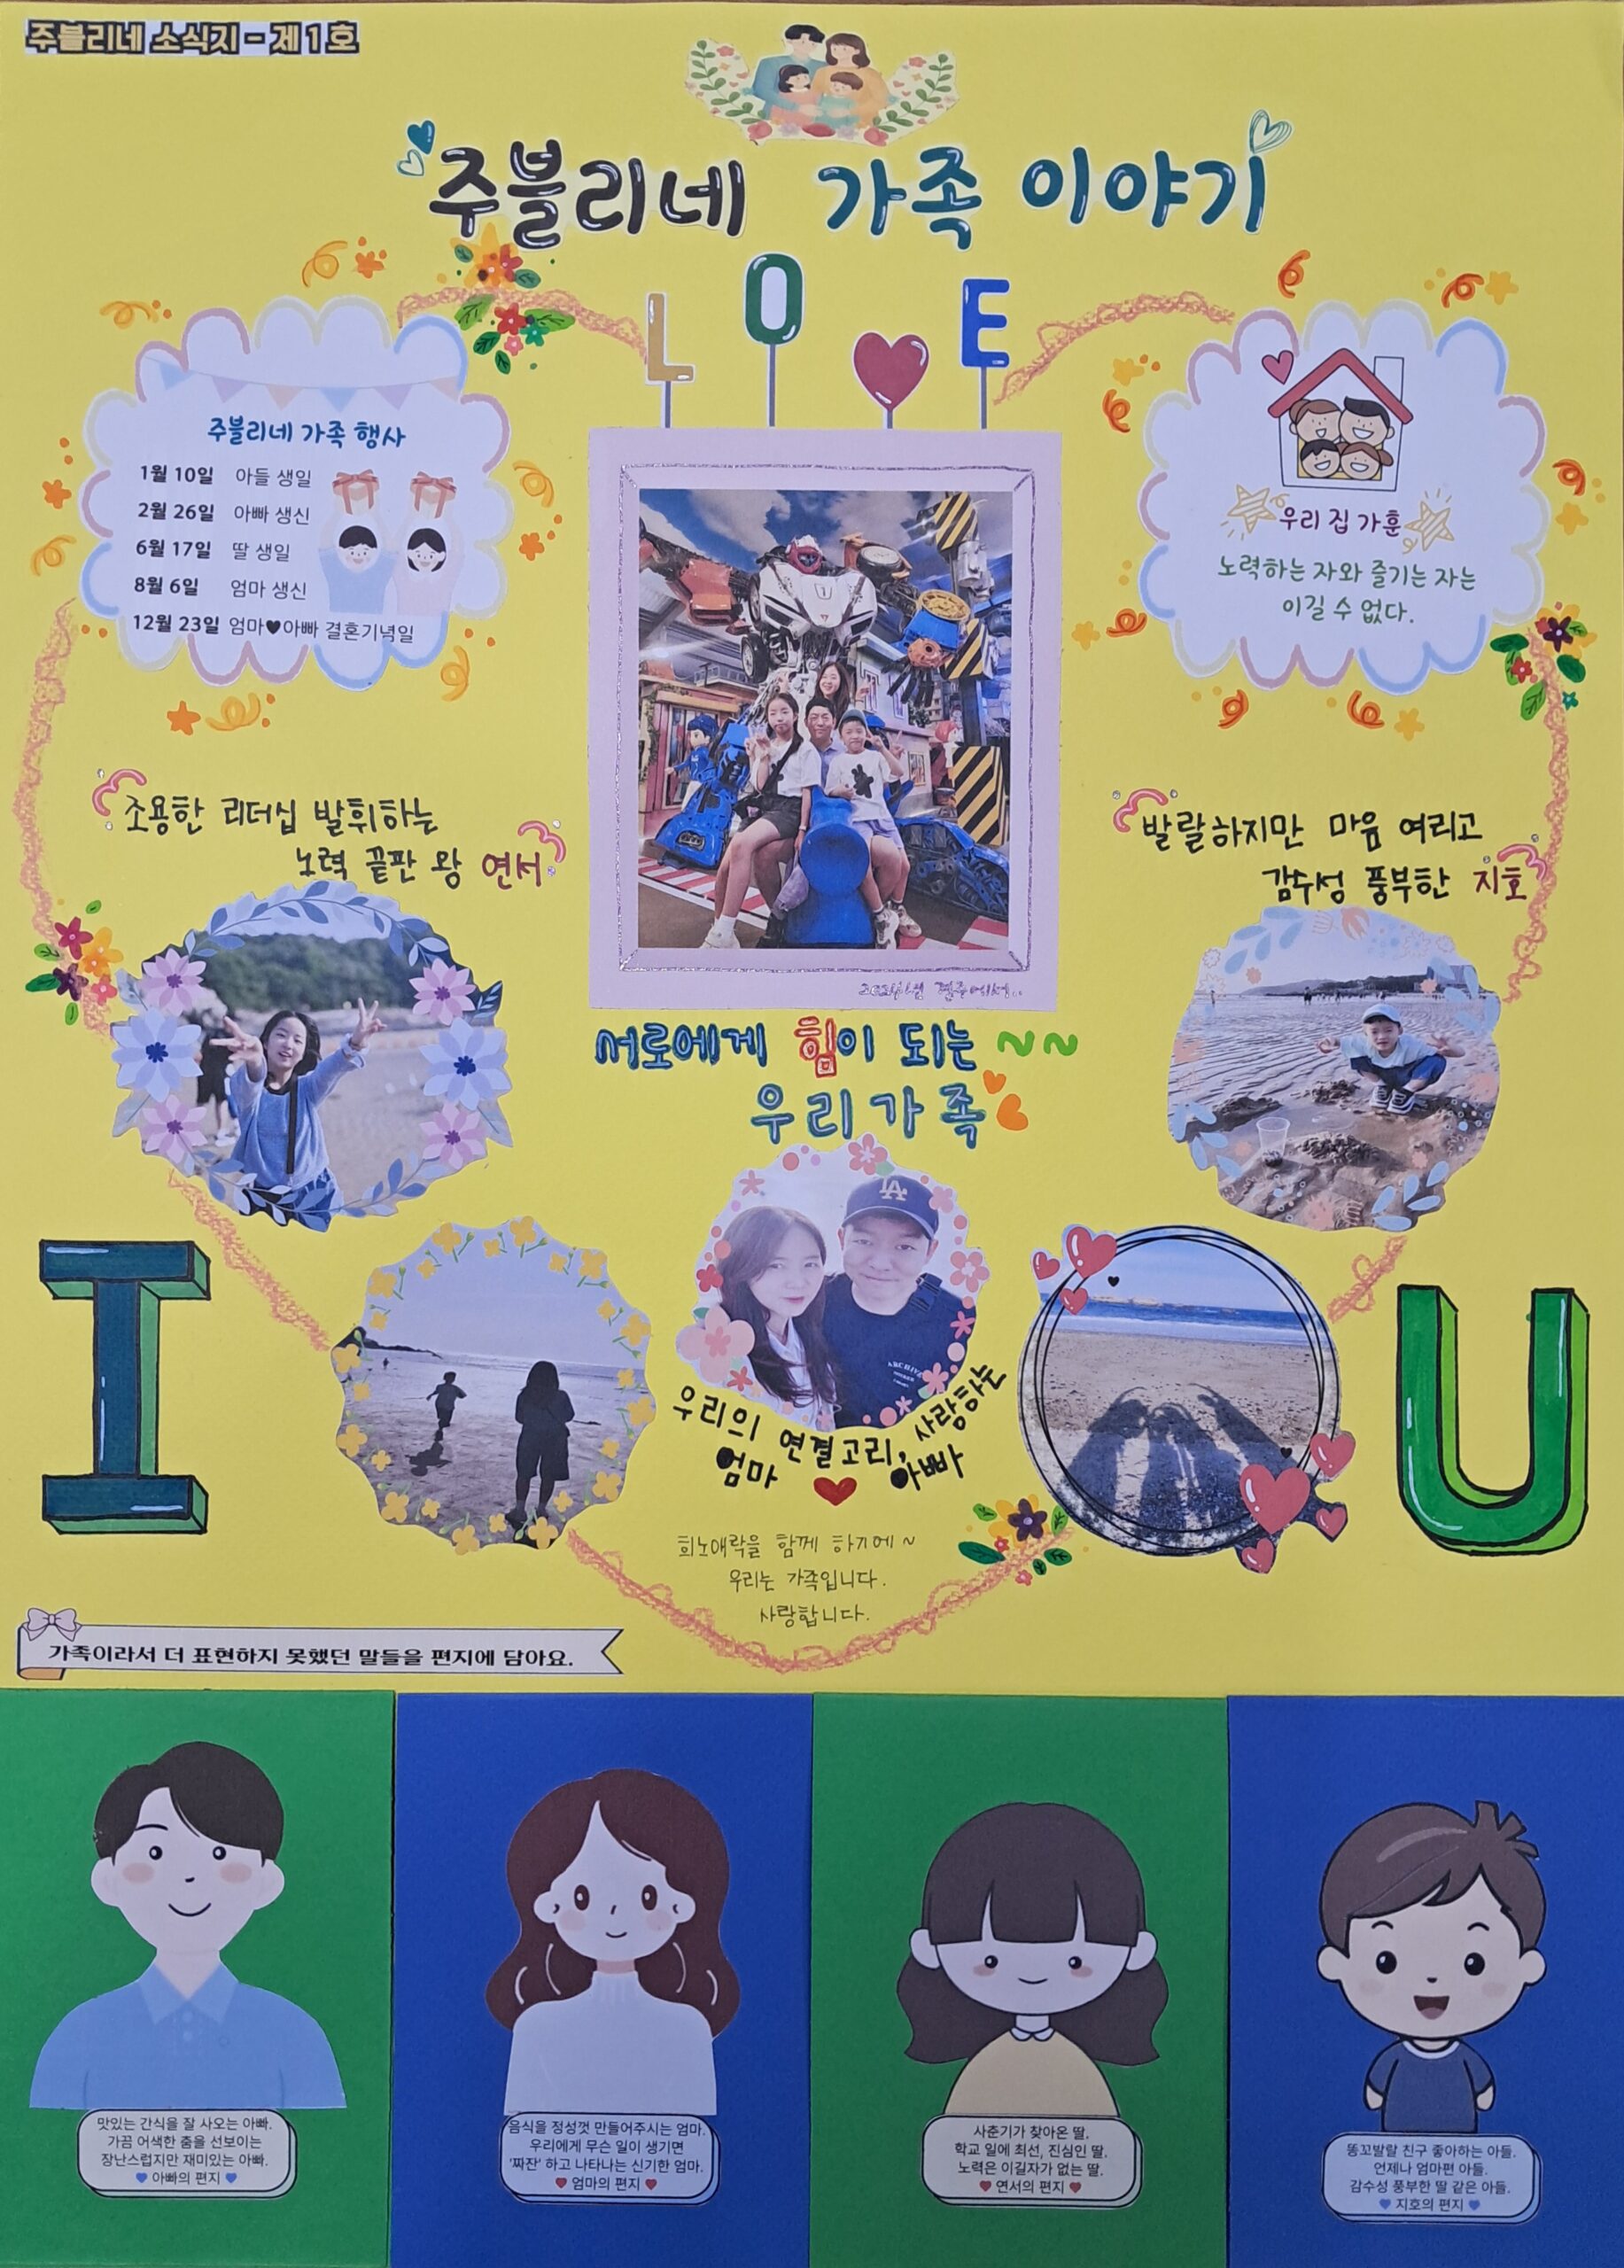 주블리네 소식지 - 제1호
주블리네 가족 이야기
L O E
주블리네 가족 행사
1월 10일 아들 생일
2월 26일 아빠 생신
6월 17일 딸 생일
8월 6일 엄마 생신
12월 23일 엄마♥아빠 결혼기념일
우리 집 가훈
노력하는 자와 즐기는 자는
이길 수 없다.
조용한 리더십 발휘하는
노력 끝판 왕 연서
발랄하지만 마음 여리고
감수성 풍부한 지호
2024년 경주에서..
서로에게 힘이 되는 ~~
우리 가족
LA
우리의 연결고리, 사랑하는
엄마 ♥ 아빠
I
U
희노애락을 함께 하기에 ~
우리는 가족입니다.
사랑합니다.
가족이라서 더 표현하지 못했던 말들을 편지에 담아요.
맛있는 간식을 잘 사오는 아빠.
가끔 어색한 춤을 선보이는
장난스럽지만 재미있는 아빠.
♥ 아빠의 편지 ♥
음식을 정성껏 만들어주시는 엄마.
우리에게 무슨 일이 생기면
'짜잔' 하고 나타나는 신기한 엄마.
♥ 엄마의 편지 ♥
사춘기가 찾아온 딸.
학교 일에 최선, 진심인 딸.
노력은 이길자가 없는 딸.
♥ 연서의 편지 ♥
똥꼬발랄 친구 좋아하는 아들.
언제나 엄마편 아들.
감수성 풍부한 딸 같은 아들.
♥ 지호의 편지 ♥